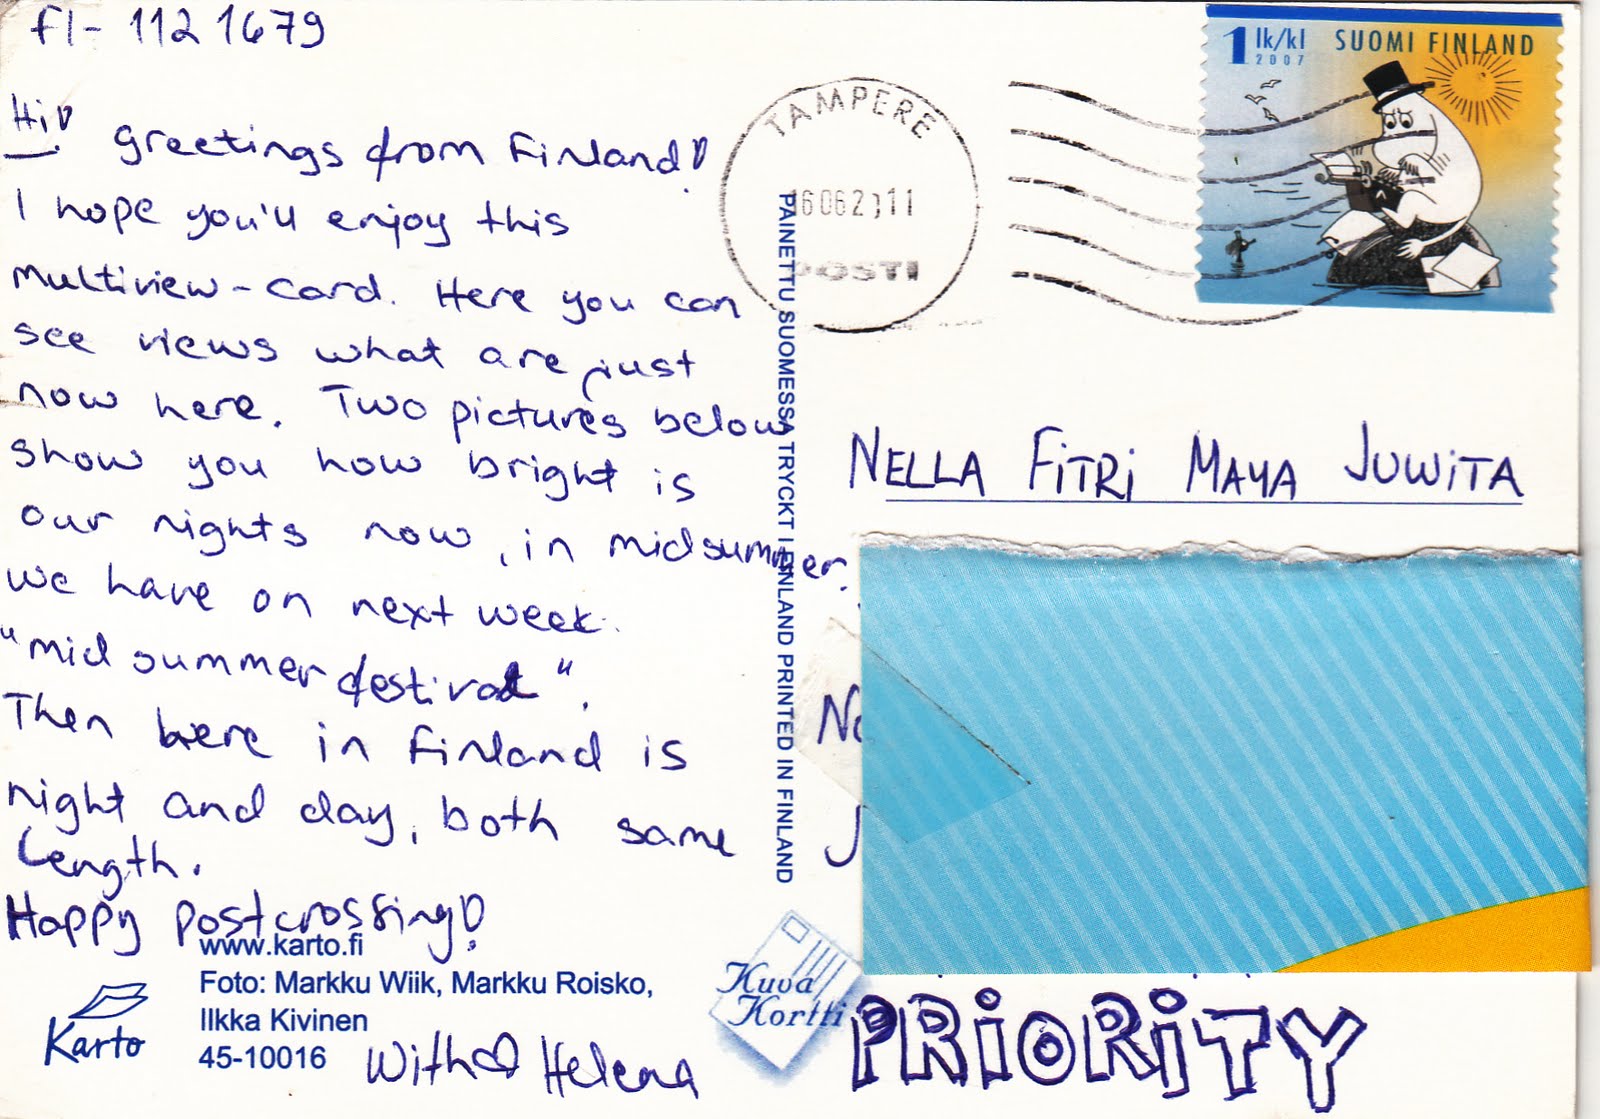 FI- 1121679
Hi!
Greetings from Finland!
I hope you'll enjoy this
multiview-card. Here you can
see views what are just
now here. Two pictures below
show you how bright is
our nights now, in midsummer.
we have on next week.
"midsummer festival".
Then here in Finland is
night and day, both same
length.
Happy postcrossing!
www.karto.fi
Foto: Markku Wiik, Markku Roisko,
Ilkka Kivinen
45-10016
Karto
With Helena
PAINETTU SUOMESSA TRYCKT I FINLAND PRINTED IN FINLAND
Kuva
Kortti
TAMPERE
POSTI
1 lk/kl
2007
SUOMI FINLAND
NELLA FITRI MAYA JUWITA
PRIORITY